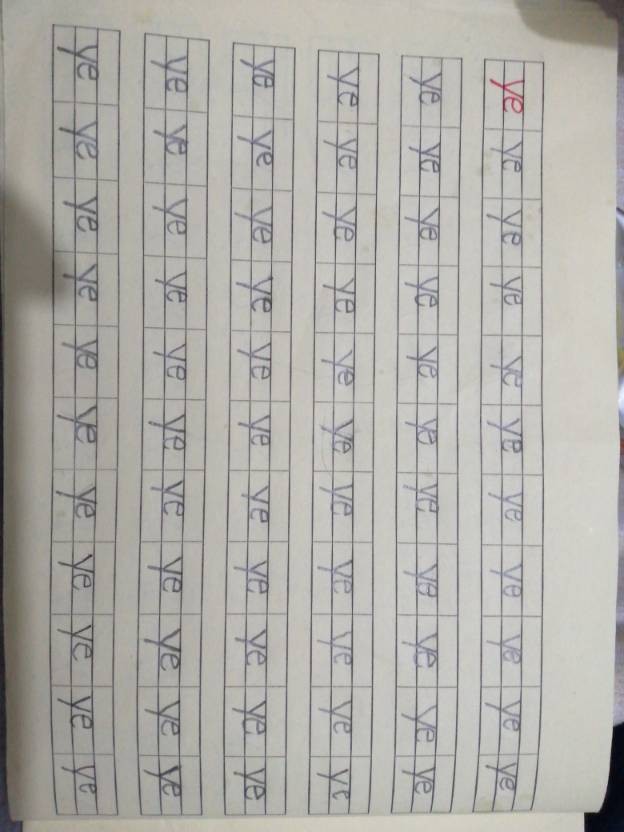 ye ye ye ye ye ye ye ye ye ye ye
ye ye ye ye ye ye ye ye ye ye ye
ye ye ye ye ye ye ye ye ye ye ye
ye ye ye ye ye ye ye ye ye ye ye
ye ye ye ye ye ye ye ye ye ye ye
ye ye ye ye ye ye ye ye ye ye ye